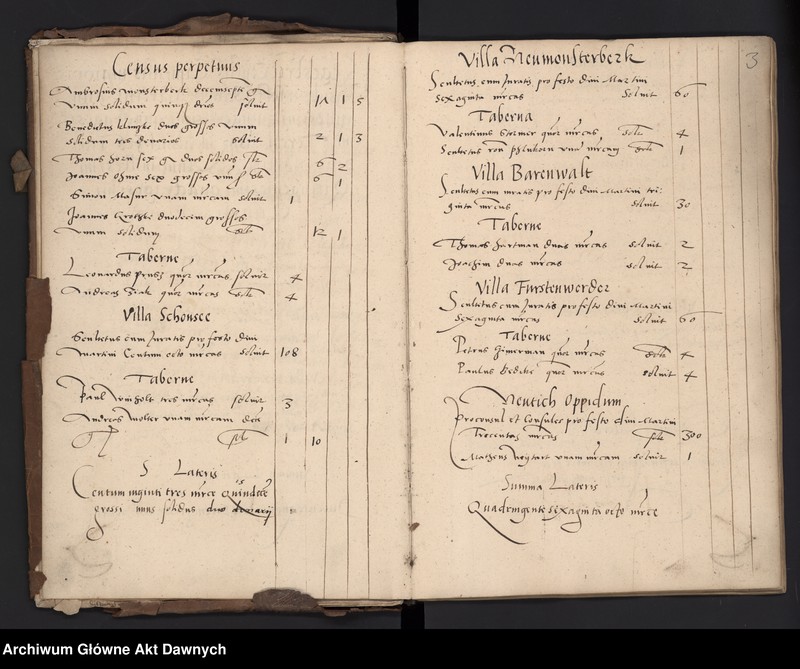 Census perpetuus
Ambrosius Monsterberk decemsepte g
Unum solidum quinq drios soluit 17 1 5
Benedictus klingke duos grosses Unum
solidum tres denarios soluit 2 1 3
Thomas Horn sex g duos solidos slt 6 2
Joannes Ohme sex grosses unu s slt 6 1
Simon Masur Unam mrcam soluit 1
Joannes duodecim grosses
Unum solidum slt 12 1
Taberne
Leonardus Pruss quor mrcas soluit 4
Andreas quor mrcas slt 4
Villa Schonsee
Scultetus cum Juratis pro festo diui
Martini Centum octo mrcas soluit 108
Taberne
Paul tres mrcas soluit 3
Andreas Wolter unam mrcam dece
g slt 1 10
S Lateris
Centum uiginti tres mrce Quindece
grossi unus solidus duo denarij
3
Villa Neumonsterberk
Scultetus cum Juratis pro festo diui Martini
sexaginta mrcas soluit 60
Taberna
Valentinus Stormer quor mrcas slt 4
Scultetus unu mrcam slt 1
Villa Barenwalt
Scultetus cum iuratis pro festo diui Martini tri
ginta mrcas soluit 30
Taberne
Thomas Hartman duas mrcas soluit 2
Joachim duas mrcas soluit 2
Villa Furstenwerder
Scultetus cum Juratis pro festo diui Martini
sexaginta mrcas soluit 60
Taberne
Petrus Zimerman quor mrcas slt 4
Paulus quor mrcas soluit 4
Neutich Oppidum
Proconsul et Consules pro festo diui Martini
Trecentas mrcas slt 300
Matheus unam mrcam soluit 1
Summa Lateris
Quadringente sexaginta octo mrce
Archiwum Główne Akt Dawnych